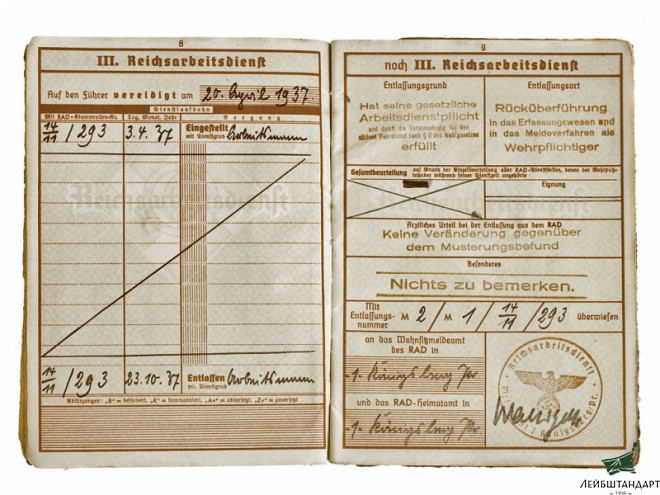 8
III. Reichsarbeitsdienst
Auf den Führer vereidigt am 20. April 1937
Dienstlaufbahn
Mit RAD-Stammrollen-Nr. Tag, Monat, Jahr Vorgang
14/11/293 3.4.37 Eingestellt Arbeitsmann
mit Dienstgrad
Reichsarbeitsdienst
14/11/293 23.10.37 Entlassen Arbeitsmann
mit Dienstgrad
Abkürzungen:
9
noch III. Reichsarbeitsdienst
Entlassungsgrund Entlassungsart
Hat seine gesetzliche
Arbeitsdienstpflicht
und damit die Voraussetzung für den
aktiven Wehrdienst nach § 8 des Wehrgesetzes
erfüllt
Rücküberführung
in das Erfassungswesen und
in das Meldeverfahren als
Wehrpflichtiger
Gesamtbeurteilung auf Grund der Einzelbeurteilung aller RAD-Dienststellen, denen der Wehrpaß-
inhaber während seiner Dienstzeit angehörte
Eignung
Ärztliches Urteil bei der Entlassung aus dem RAD
Keine Veränderung gegenüber
dem Musterungsbefund
Besonderes
Nichts zu bemerken.
Mit
Entlassungs-
nummer M 2 / M 1 / 14/11 / 293 überwiesen
an das Wohnsitzmeldeamt
des RAD in
-1- Königsberg Pr
und das RAD-Heimatamt in
-1- Königsberg Pr
Reichsarbeitsdienst
ЛЕЙБШТАНДАРТ